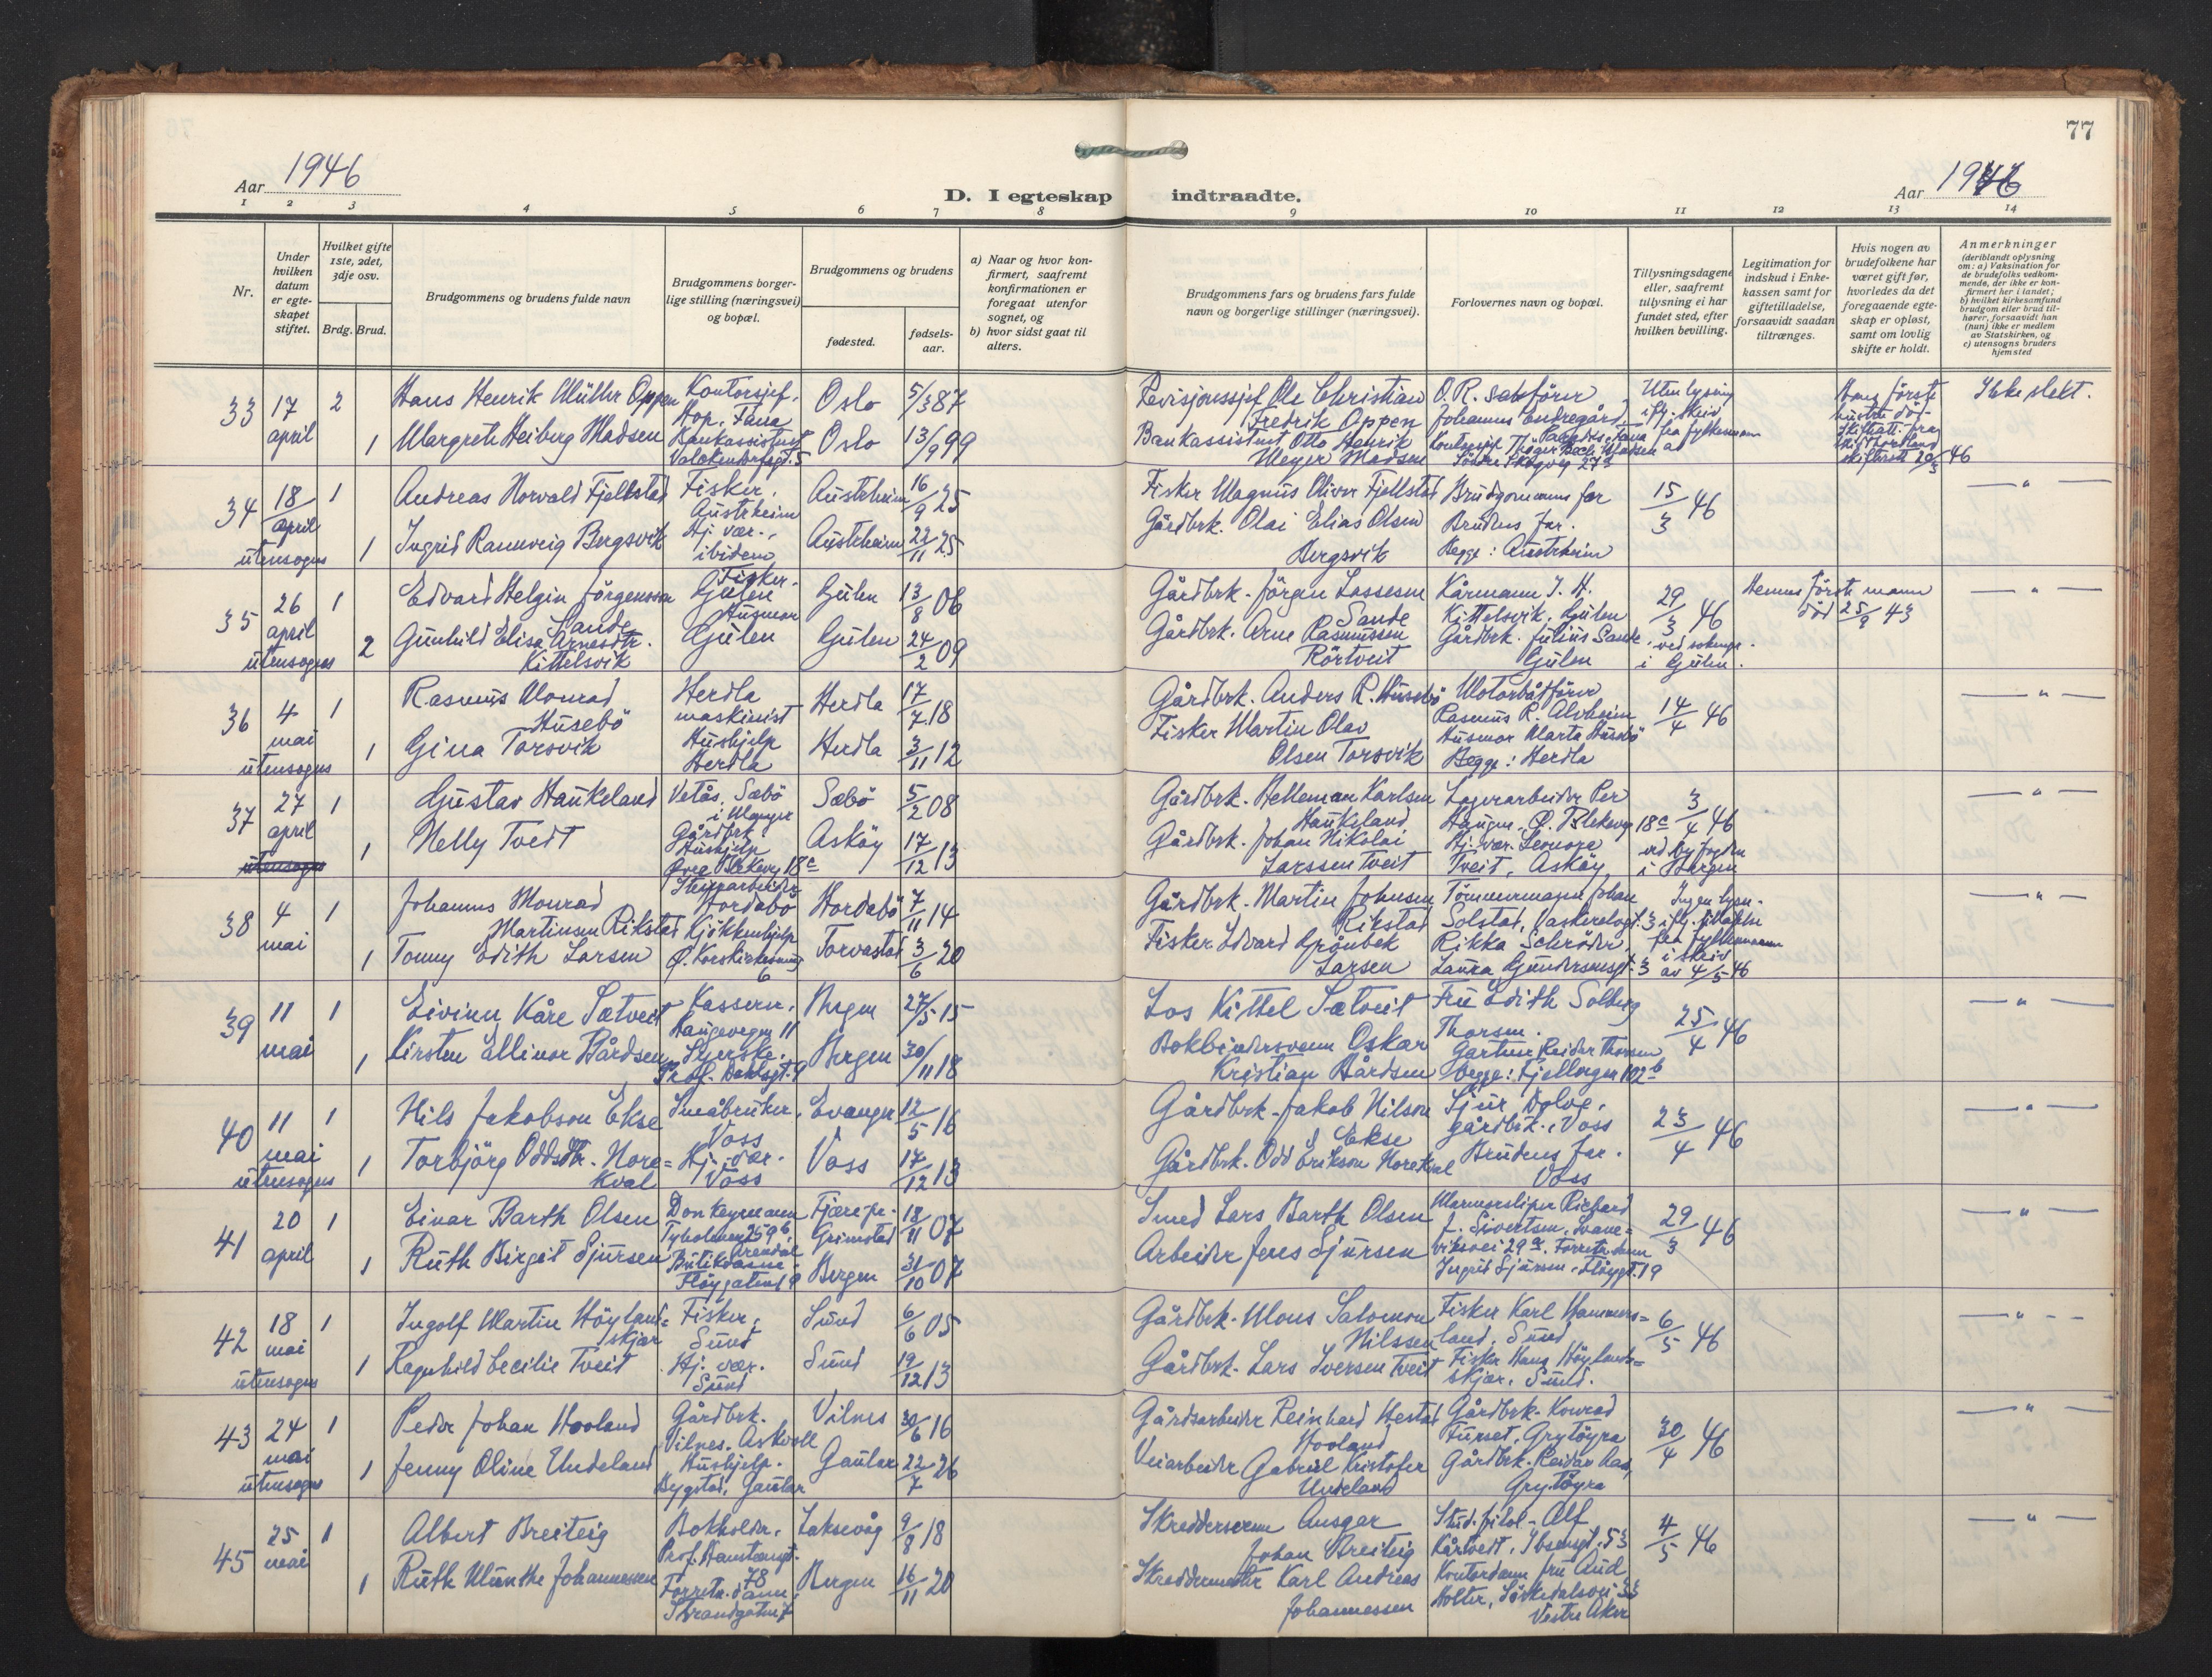 77
Aar 1946
D. I egteskap indtraadte.
Aar 1946
1 2 3 4 5 6 7 8 9 10 11 12 13 14
Nr.
Under hvilken datum er egteskapet stiftet.
Hvilket gifte 1ste, 2det, 3dje osv.
Brdg. Brud.
Brudgommens og brudens fulde navn
Brudgommens borgerlige stilling (næringsvei) og bopæl.
Brudgommens og brudens
fødested.
fødselsaar.
a) Naar og hvor konfirmert, saafremt konfirmationen er foregaat utenfor sognet, og
b) hvor sidst gaat til alters.
Brudgommens fars og brudens fars fulde navn og borgerlige stillinger (næringsvei).
Forlovernes navn og bopæl.
Tillysningsdagene eller, saafremt tillysning ei har fundet sted, efter hvilken bevilling.
Legitimation for indskud i Enkekassen samt for giftetilladelse, forsaavidt saadan tiltrænges.
Hvis nogen av brudefolkene har været gift før, hvorledes da det foregaaende egteskap er opløst, samt om lovlig skifte er holdt.
Anmerkninger
(deriblandt oplysning om: a) Vaksination for de brudefolks vedkommende, der ikke er konfirmert her i landet;
b) hvilket kirkesamfund brudgom eller brud tilhører, forsaavidt han (hun) ikke er medlem av Statskirken, og
c) utensogns bruders hjemsted
33 17 april 2 Hans Henrik Müller Oppen Kontorsjef. Hop, Fana Oslo 5/3 87
Revisjonssjef Ole Christian Fredrik Oppen O.R. sakfører Johannes Endregård Uten lysning Hans første hustru død. Ikke slekt.
1 Margrete Heiberg Madsen Bankassistent Oslo 13/9 99
Bankassistent Otto Henrik Meyer Madsen
34 18/april utensogns 1 Andreas Norvald Fjellstad Fisker, Austrheim Austrheim 16/9 25
Fisker Magnus Oliver Fjellstad Brudgommens far 15/3 46 — " —
1 Ingrid Rannveig Bergsvik Hj. vær., ibidem Austrheim 22/11 25
Gårdbrk. Olai Elias Olsen Bergsvik Brudens far. Begge: Austrheim
35 26 april utensogns 1 Edvard Helgin Jörgensson Sande Fisker. Gulen Gulen 13/8 06
Gårdbrk. Jörgen Lassesen Sande Kårmann J. H. Kittelsvik, Gulen 29/3 46 Hennes förste mann död 25/9 43 — " —
2 Gunhild Elisa Arnesdtr. Kittelsvik Husmor Gulen Gulen 24/2 09
Gårdbrk. Arne Rasmussen Rörtveit Gårdbrk. Julius Sande, Gulen ved sokнepr. i Gulen.
36 4 mai utensogns 1 Rasmus Monrad Husebö Herdla maskinist Herdla 17/7 18
Gårdbrk. Anders R. Husebö Motorbåtförer Rasmus R. Alvheim 14/4 46 — " —
1 Gina Torsvik Hushjelp Herdla Herdla 3/11 12
Fisker Martin Olav Olsen Torsvik Husmor Marta Husebö Begge: Herdla
37 27 april utensogns 1 Gustav Haukeland Vetås, Sæbö i Manger Gårdbrk. Sæbö 5/2 08
Gårdbrk. Helleman Karlsen Haukeland Lagerarbeider Per Haugen, Ø. Blekevg 18c 3/4 46 — " —
1 Nelly Tveit Hushjelp Øvre Blekevg 18c Asköy 17/12 13
Gårdbrk. Johan Nikolai Larssen Tveit Hj. vær. Leonora Tveit, Asköy ved byfogden i Bergen
38 4 mai 1 Johannes Monrad Martinsen Rikstad Hordabö Hordabö 7/11 14
Gårdbrk. Martin Johnsen Rikstad Tömmermann Johan Solstad, Vaskerelvgt. 3 Ingen lysn. — " —
1 Tonny Edith Larsen Kjökkenhjelp Ø. Korskirkesmug 6 Torvastad 3/6 20
Fisker Edvard Grönbek Larsen Rikka Schröder, Laura Gundersensgt. 3 i skriv av 4/5 46
39 11 mai 1 Eivinn Kåre Sætveit Kasserer, Haugevegen 11 Bergen 27/5 15
Los Kittel Sætveit Fru Edith Solberg Thorsen. 25/4 46 — " —
1 Kirsten Ellinor Bårdsen Syerske. Prof. Dahlsgt. 9 Bergen 30/11 18
Bokbindersvenn Oskar Kristian Bårdsen Gartner Reidar Thorsen begge: Fjellvegen 102b
40 11 mai utensogns 1 Nils Jakobson Ekse Småbruker, Voss Evanger 12/5 16
Gårdbrk. Jakob Nilson Ekse Sjur Dolve, gårdbrk., Voss 23/4 46 — " —
1 Torbjörg Oddsdtr. Horekval Hj. vær. Voss Voss 17/12 13
Gårdbrk. Odd Erikson Horekval Brudens far. Voss
41 20 april 1 Einar Barth Olsen Donkeymann Tyholmen 259b, Arendal Fjære pr. Grimstad 18/11 07
Smed Lars Barth Olsen Marmorsliper Richard J. Sivertsen, Svaneviksvei 29a. 29/3 46 — " —
1 Ruth Birgit Sjursen Butikdame Flöygaten 19 Bergen 31/10 07
Arbeider Jens Sjursen Forretn.dame Ingrid Sjursen, Flöygt. 19
42 18 mai utensogns 1 Ingolf Martin Höylandskjær Fisker, Sund Sund 6/6 05
Gårdbrk. Mons Salomon Nilssen Fisker Karl Hammersland, Sund 6/5 46 — " —
1 Ragnhild Cecilie Tveit Hj. vær. Sund Sund 19/12 13
Gårdbrk. Lars Iversen Tveit Fisker Hans Höylandskjær, Sund.
43 24 mai utensogns 1 Peder Johan Hovland Gårdbrk. Vilnes, Askvoll Vilnes 30/6 16
Gårdsarbeider Reinhard Hestad Hovland Gårdbrk. Konrad Furset, Grytöyra 30/4 46 — " —
1 Jenny Oline Undeland Hushjelp. Bygstad, Gaular Gaular 22/7 26
Veiarbeider Gabriel Kristofer Undeland Gårdbrk. Reidar Aas, Grytöyra
45 25 mai 1 Albert Breiteig Bokholder, Prof. Hansteensgt. 78 Laksevåg 9/8 18
Skreddersvenn Ansgar Johan Breiteig Stud. filol. Alf Kårtveit, Ibsensgt. 53 4/5 46 — " —
1 Ruth Munthe Johannessen Forretn.dame, Strandgaten Bergen 16/11 20
Skreddermester Karl Andreas Johannessen Kontordame fru Aud Holter, Sörkedalsvei 33 Vestre Aker